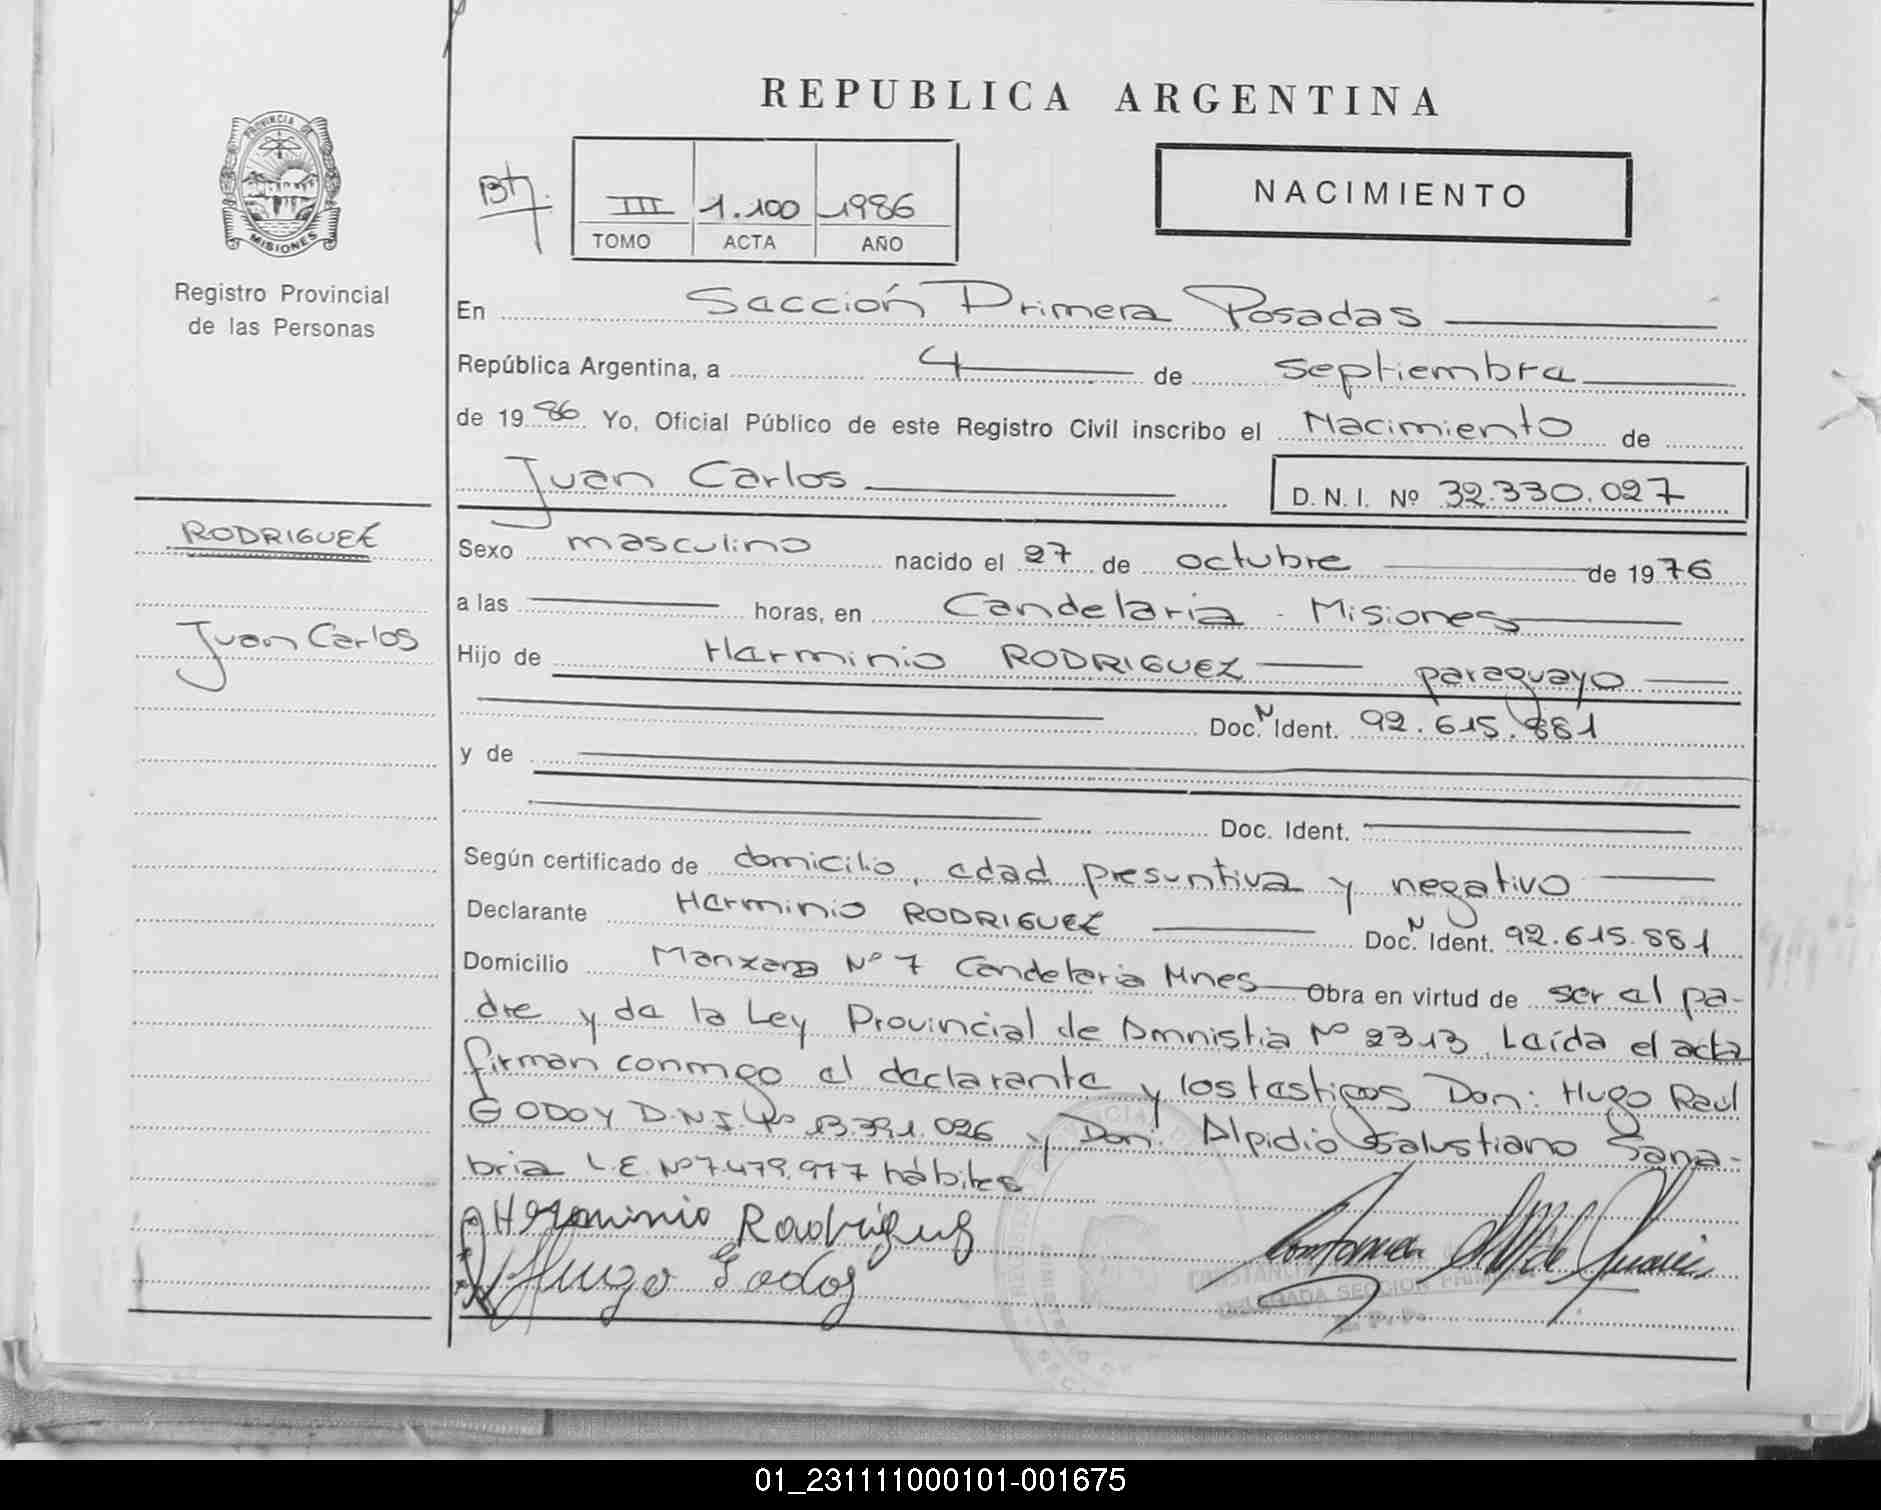 REPUBLICA ARGENTINA
PROVINCIA DE
MISIONES
Registro Provincial
de las Personas
III 1.100 1986
TOMO ACTA AÑO
NACIMIENTO
En Sección Primera Posadas
República Argentina, a 4 de septiembre
de 1986 Yo, Oficial Público de este Registro Civil inscribo el Nacimiento de
Juan Carlos D.N.I. Nº 32.330.027
RODRIGUEZ
Juan Carlos
Sexo masculino nacido el 27 de octubre de 1976
a las horas, en Candelaria - Misiones
Hijo de Herminio RODRIGUEZ paraguayo
Doc. N Ident. 92.615.881
y de
Doc. Ident.
Según certificado de domicilio, edad presuntiva y negativo
Declarante Herminio RODRIGUEZ Doc. N Ident. 92.615.881
Domicilio Manzana Nº 7 Candelaria Mnes Obra en virtud de ser el pa-
dre y de la Ley Provincial de Amnistia Nº 2313. Leída el acta
firman conmigo el declarante y los testigos Don: Hugo Raúl
GODOY D.N.I. Nº 13.391.026 y Don: Alpidio Salustiano Sana-
bria L.E. Nº 7.479.977 hábiles
Herminio Rodriguez
Hugo Godoy
DELEGADA SECCION PRIMERA
01_231111000101-001675